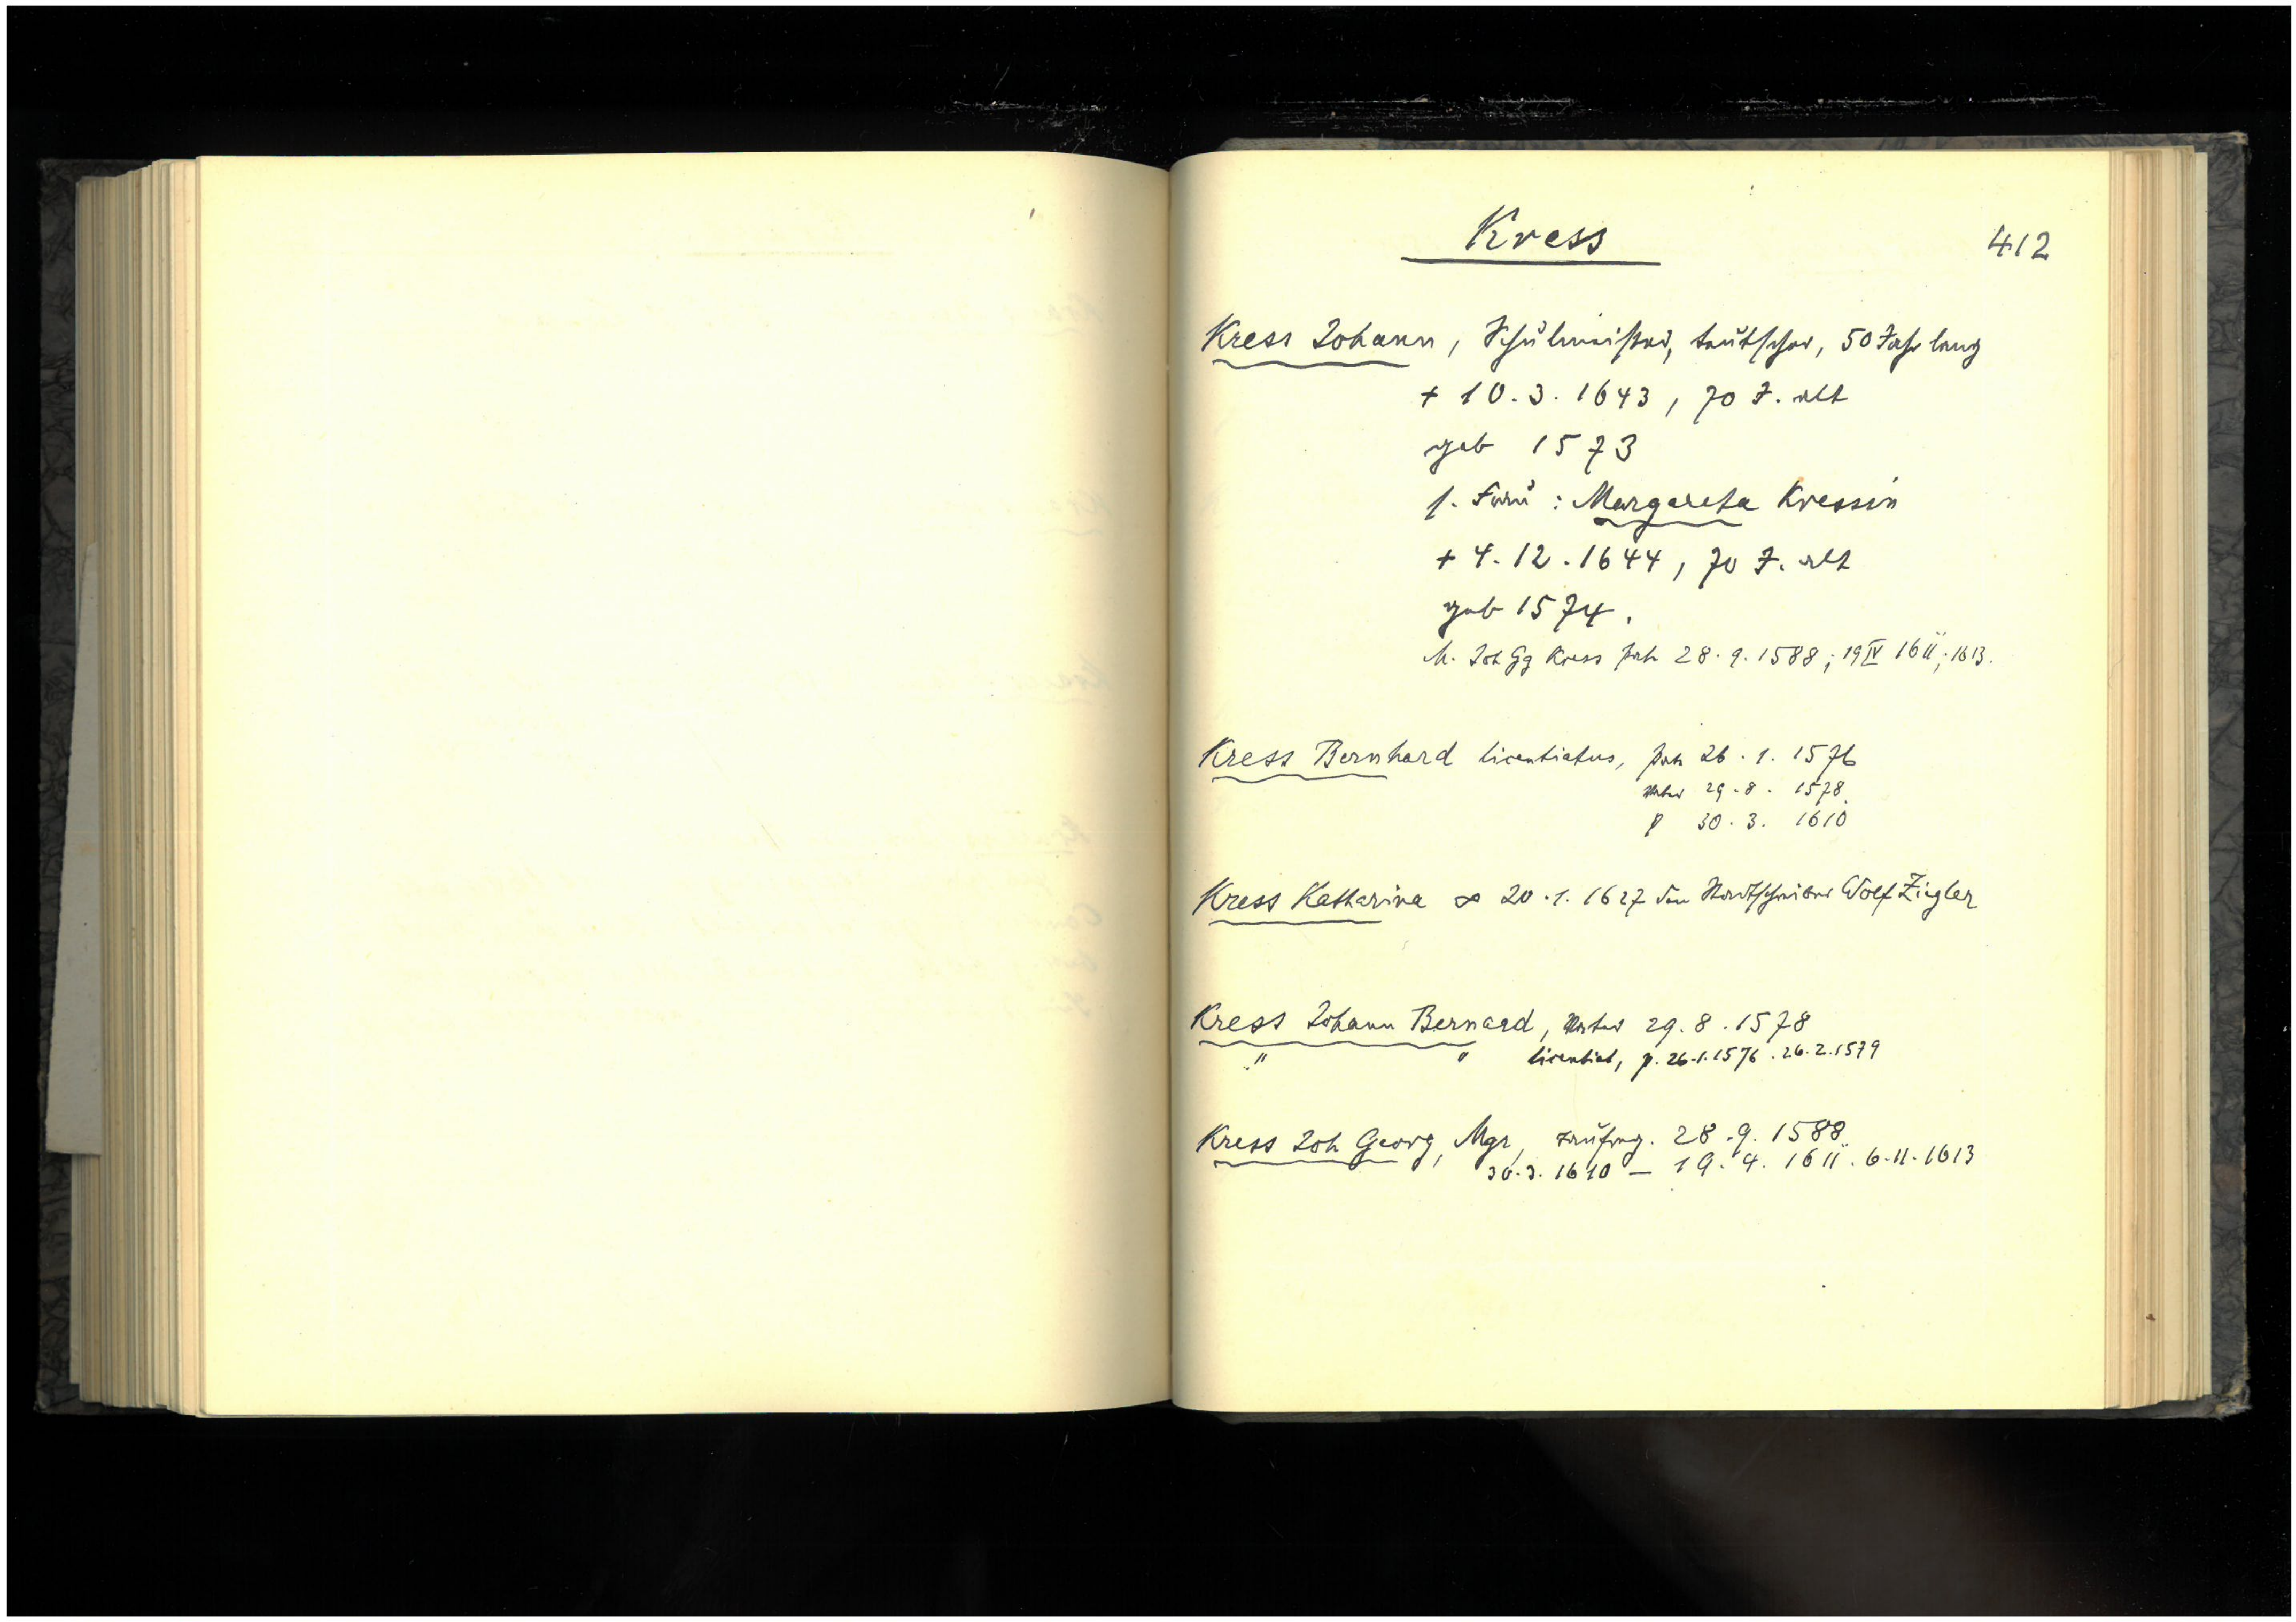 Kress
412
Kress Johann, Schulmeister, teutscher, 50 Jahr lang
+ 10. 3. 1643, 70 J. alt
geb 1573
s. Frau : Margareta Kressin
+ 4. 12. 1644, 70 J. alt
geb 1574.
M. Joh Gg Kress pat 28. 9. 1588; 19 IV 1611; 1613.
Kress Bernhard licentiatus, pat 26. 1. 1576
Vater 29. 8. 1578
p 30. 3. 1610
Kress Katharina ∞ 20. 1. 1627 den Stadtschreiber Wolf Ziegler
Kress Johann Bernard, Vater 29. 8. 1578
" " licentiat, p. 26.1.1576. 26.2.1579
Kress Joh Georg, Mgr, Taufzeug. 28. 9. 1588
30.3.1610 – 19. 4. 1611. 6.11.1613